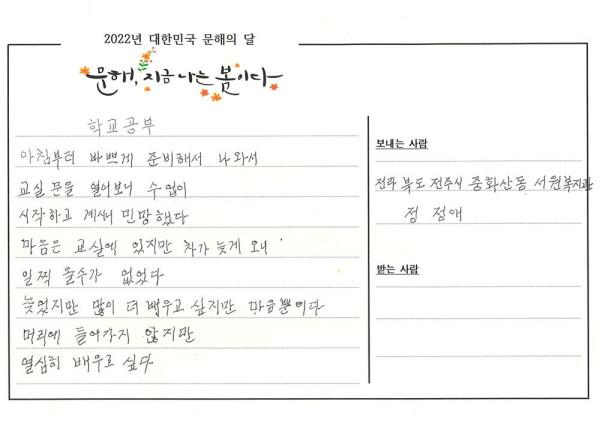 2022년 대한민국 문해의 달
문해, 지금 나는 봄이다
학교공부
아침부터 바쁘게 준비해서 나와서
교실 문을 열어보니 수업이
시작하고 계셔서 민망했다
마음은 교실에 있지만 차가 늦게 오니
일찍 올수가 없었다
늦었지만 많이 더 배우고 싶지만 마음뿐이다
머리에 들어가지 않지만
열심히 배우고 싶다
보내는 사람
전라북도 전주시 중화산동 서원복지관
정 점애
받는 사람